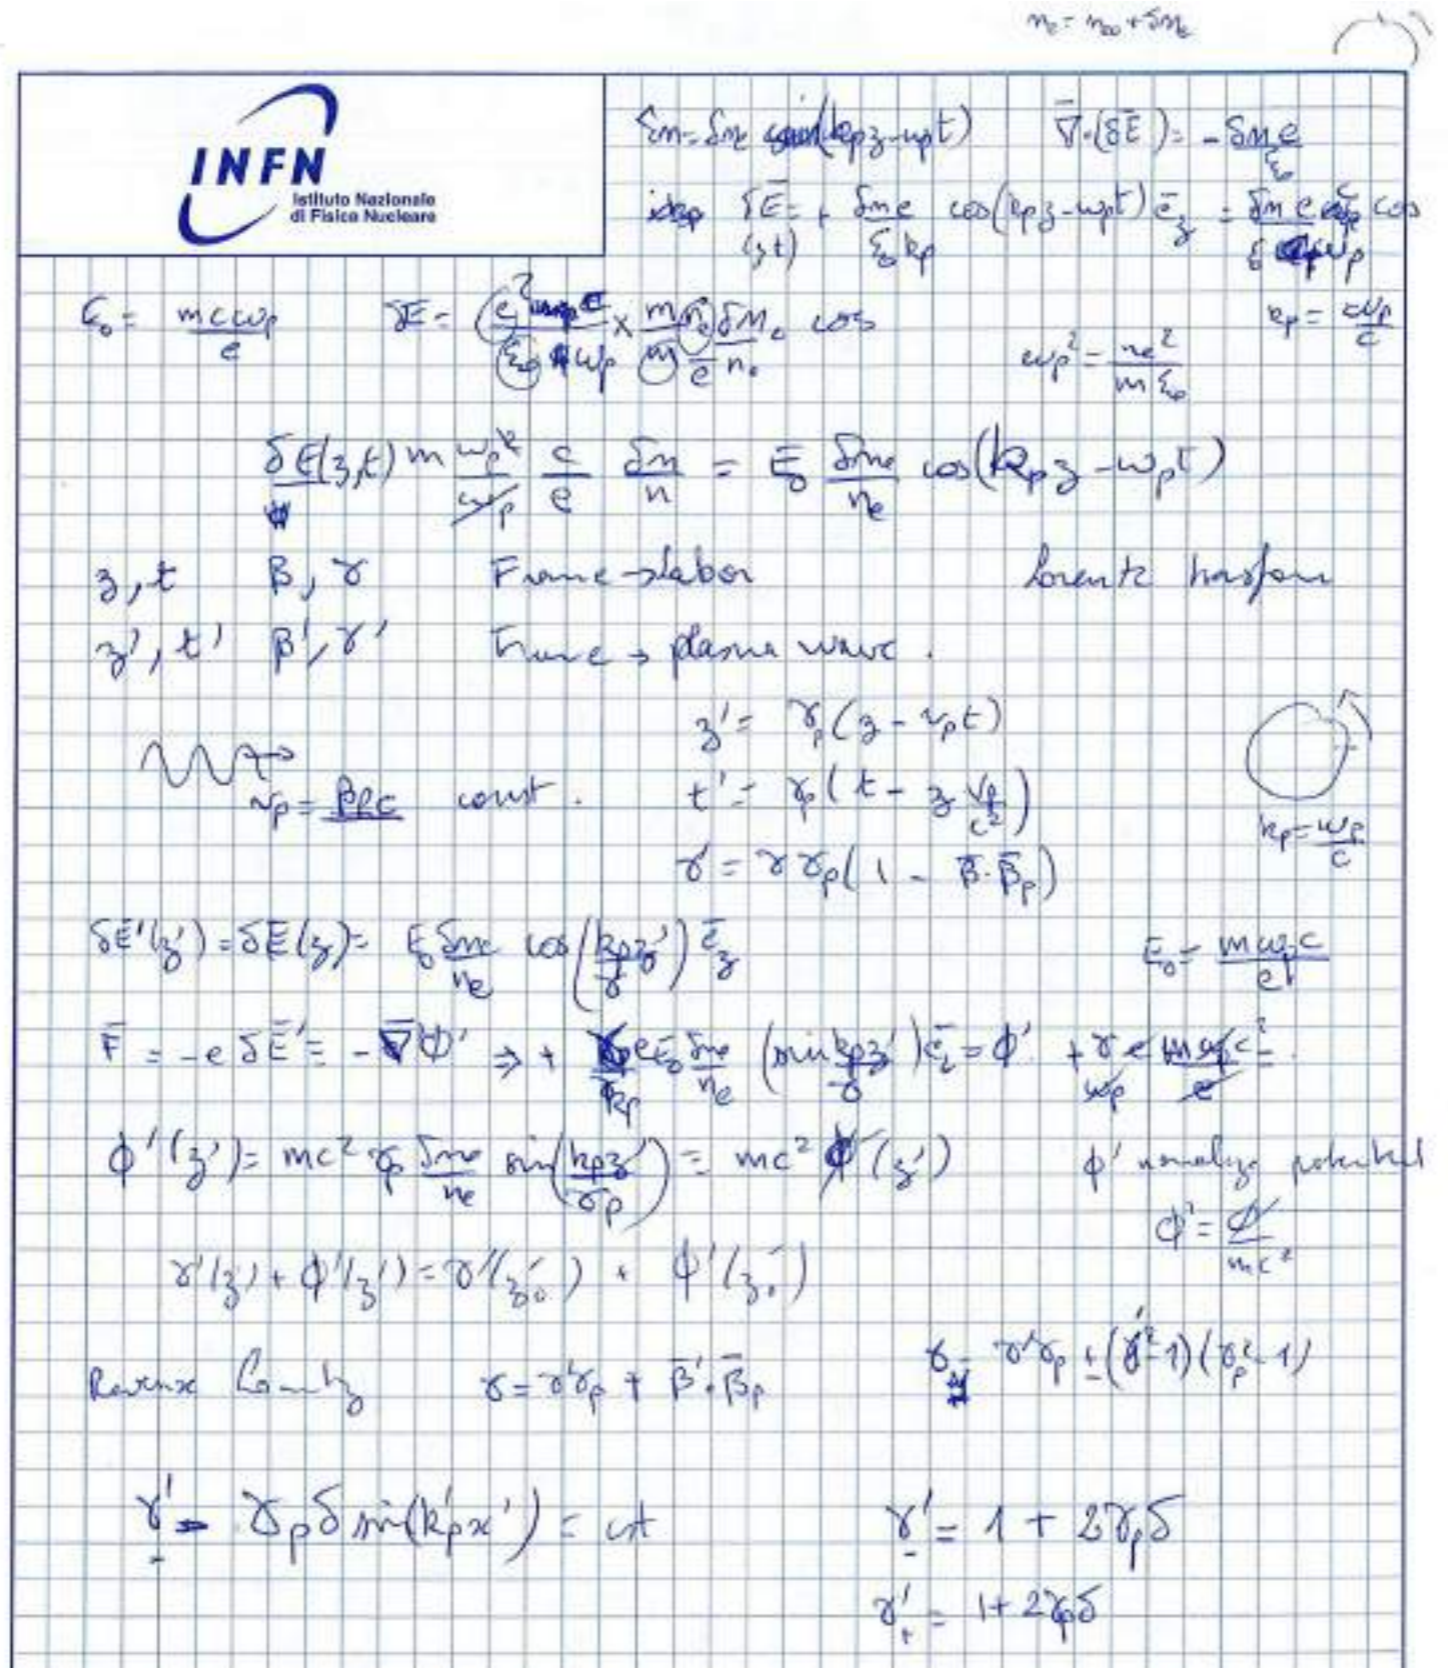 n_e = n_{e0} + δn_e
INFN
Istituto Nazionale
di Fisica Nucleare
δn = δn_e sin(k_p z - ω_p t)   ∇̄·(δĒ) = - δn_e e / ε_0
δĒ (z,t) = + δn e / (ε_0 k_p) cos(k_p z - ω_p t) ē_z = δn e c / (ε_0 ω_p) cos
E_0 = m c ω_p / e   δE = e^2 / (ε_0 ω_p) × m n_e / (m e) δn_e / n_0 cos   k_p = ω_p / c
ω_p^2 = n e^2 / (m ε_0)
δE(z,t) m ω_p^2 / ω_p c / e δn / n = E_0 δn_e / n_e cos(k_p z - ω_p t)
z, t   β, γ   Frame → labor   Lorentz transform
z', t'   β', γ'   Frame → plasma wave.
z' = γ_p (z - v_p t)
v_p = β_p c const.   t' = γ_p (t - z v_p / c^2)
k_p = ω_p / c
γ' = γ γ_p (1 - β̄·β̄_p)
δE'(z') = δE(z) = E_0 δn_e / n_e cos(k_p z' / γ) ē_z   E_0 = m ω_p c / e
F̄ = -e δĒ' = - ∇̄ φ' ⇒ + e E_0 δn_e / n_e (sin k_p z' / γ) ē_z = φ'   + γ e m ω_p c^2 / (ω_p e) =
φ'(z') = mc^2 γ_p δn_e / n_e sin(k_p z' / γ_p) = mc^2 φ'(z')   φ' normalize potential
φ' = φ / mc^2
γ'(z) + φ'(z') = γ'(z_0') + φ'(z_0')
Reverse Lorentz   γ = γ'γ_p + β̄'·β̄_p   γ = γ'γ_p ± (γ'^2 - 1)(γ_p^2 - 1)
γ' - γ_p δ sin(k_p' x') = cst   γ'_- = 1 + 2γ_p δ
γ'_+ = 1 + 2γ_p δ